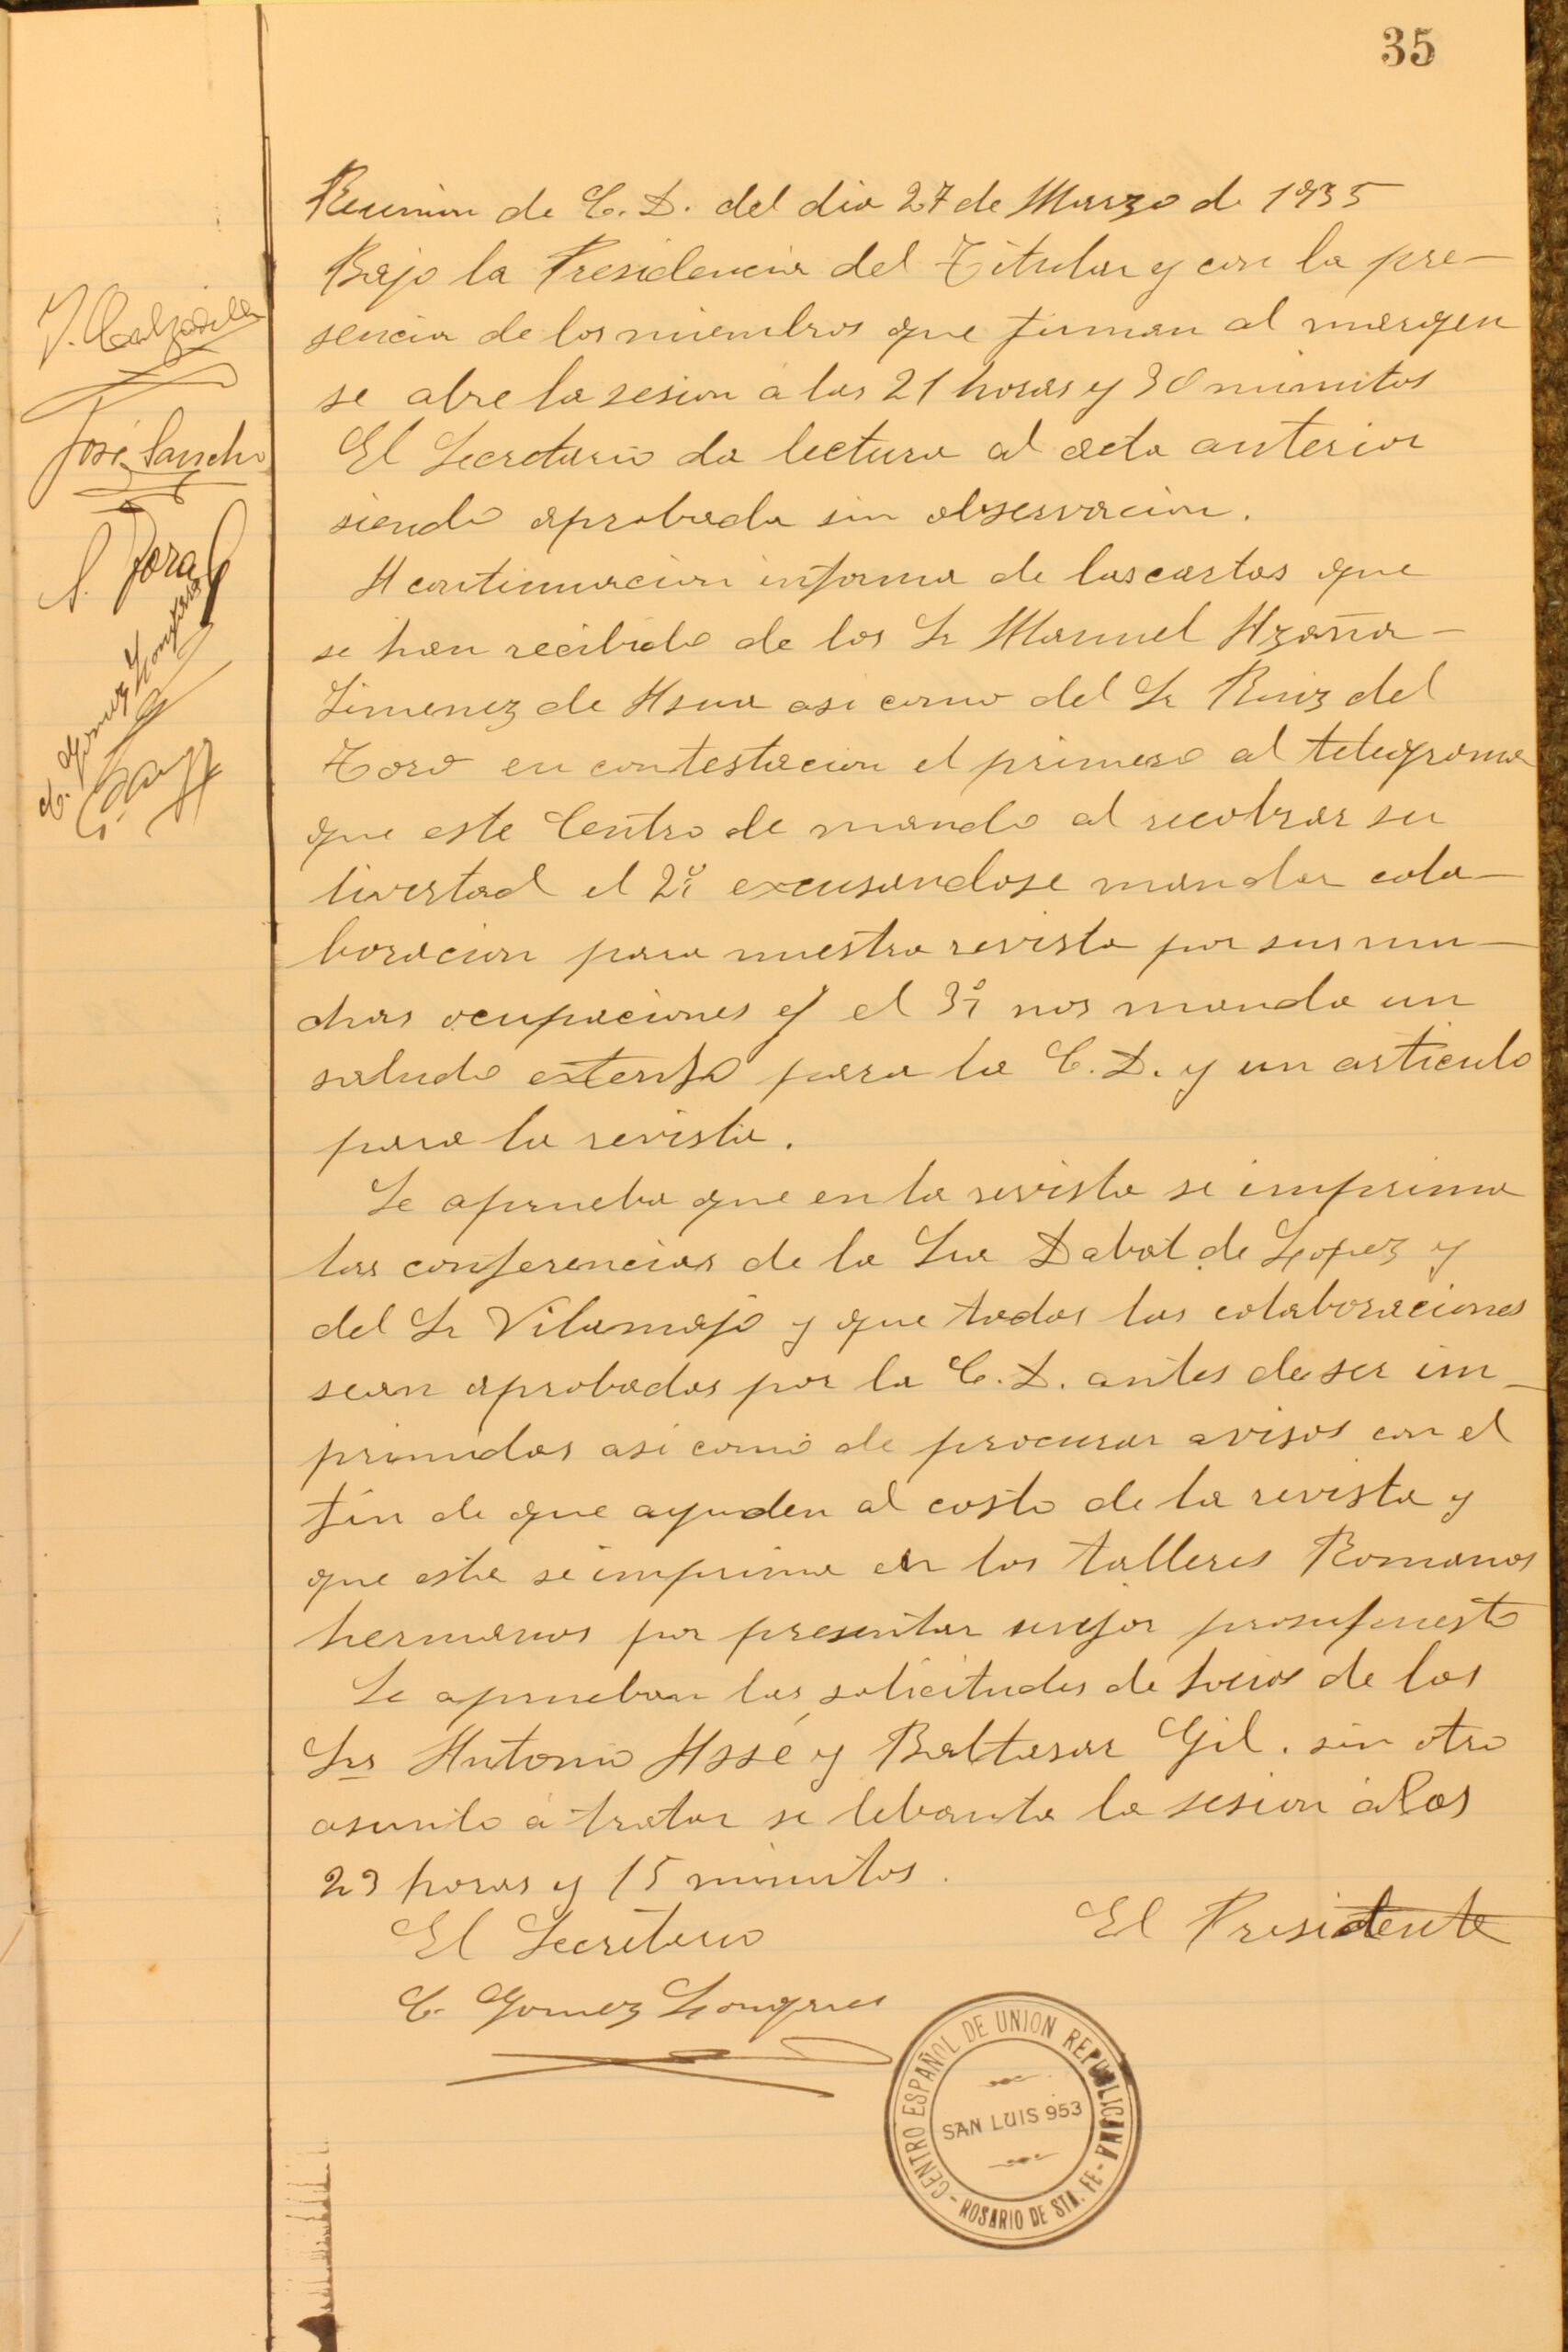 35
Reunion de C. D. del dia 27 de Marzo de 1935
Bajo la Presidencia del Titular y con la pre-
sencia de los miembros que firman al margen
se abre la sesion a las 21 horas y 30 minutos
El Secretario da lectura al acta anterior
siendo aprobada sin observacion.
A continuacion informa de las cartas que
se han recibido de los Sr Manuel Azaña -
Jimenez de Asua asi como del Sr Ruiz del
Toro en contestacion el primero al telegrama
que este Centro de mando al recobrar su
livertad el 2º excusandose mandar cola-
boracion para nuestra revista por sus mu-
chas ocupaciones y el 3º nos manda un
saludo extenso para la C. D. y un articulo
para la revista.
Se aprueba que en la revista se imprima
las conferencias de la Sra Dabat de Lopez y
del Sr Vilamajo y que todas las colaboraciones
sean aprobadas por la C. D. antes de ser im-
primidas asi como de procurar avisos con el
fin de que ayuden al costo de la revista y
que esta se imprima en los talleres Romanos
hermanos por presentar mejor prosupuesto
Se aprueban las solicitudes de socios de los
Srs Antonio Assé y Baltasar Gil. sin otro
asunto a tratar se lebanta la sesion a las
23 horas y 15 minutos.
El Secretario
El Presidente
C. Gomez Longares
J. Calzadilla
José Sancho
S. Jora
C. Gomez Longares
CENTRO ESPAÑOL DE UNION REPUBLICANA
SAN LUIS 953
- ROSARIO DE STA. FE -